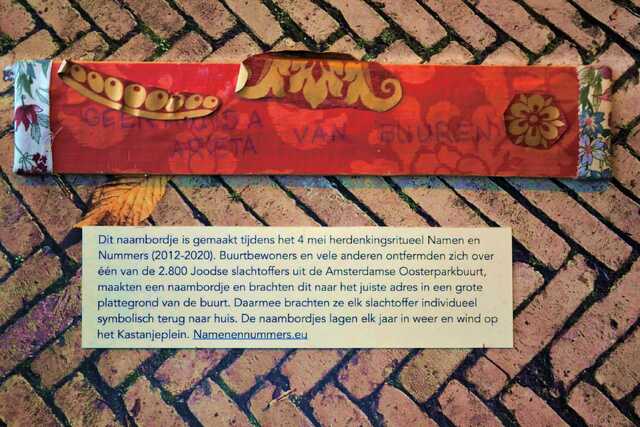 VAN BUUREN
Dit naambordje is gemaakt tijdens het 4 mei herdenkingsritueel Namen en
Nummers (2012-2020). Buurtbewoners en vele anderen ontfermden zich over
één van de 2.800 Joodse slachtoffers uit de Amsterdamse Oosterparkbuurt,
maakten een naambordje en brachten dit naar het juiste adres in een grote
plattegrond van de buurt. Daarmee brachten ze elk slachtoffer individueel
symbolisch terug naar huis. De naambordjes lagen elk jaar in weer en wind op
het Kastanjeplein. Namenennummers.eu